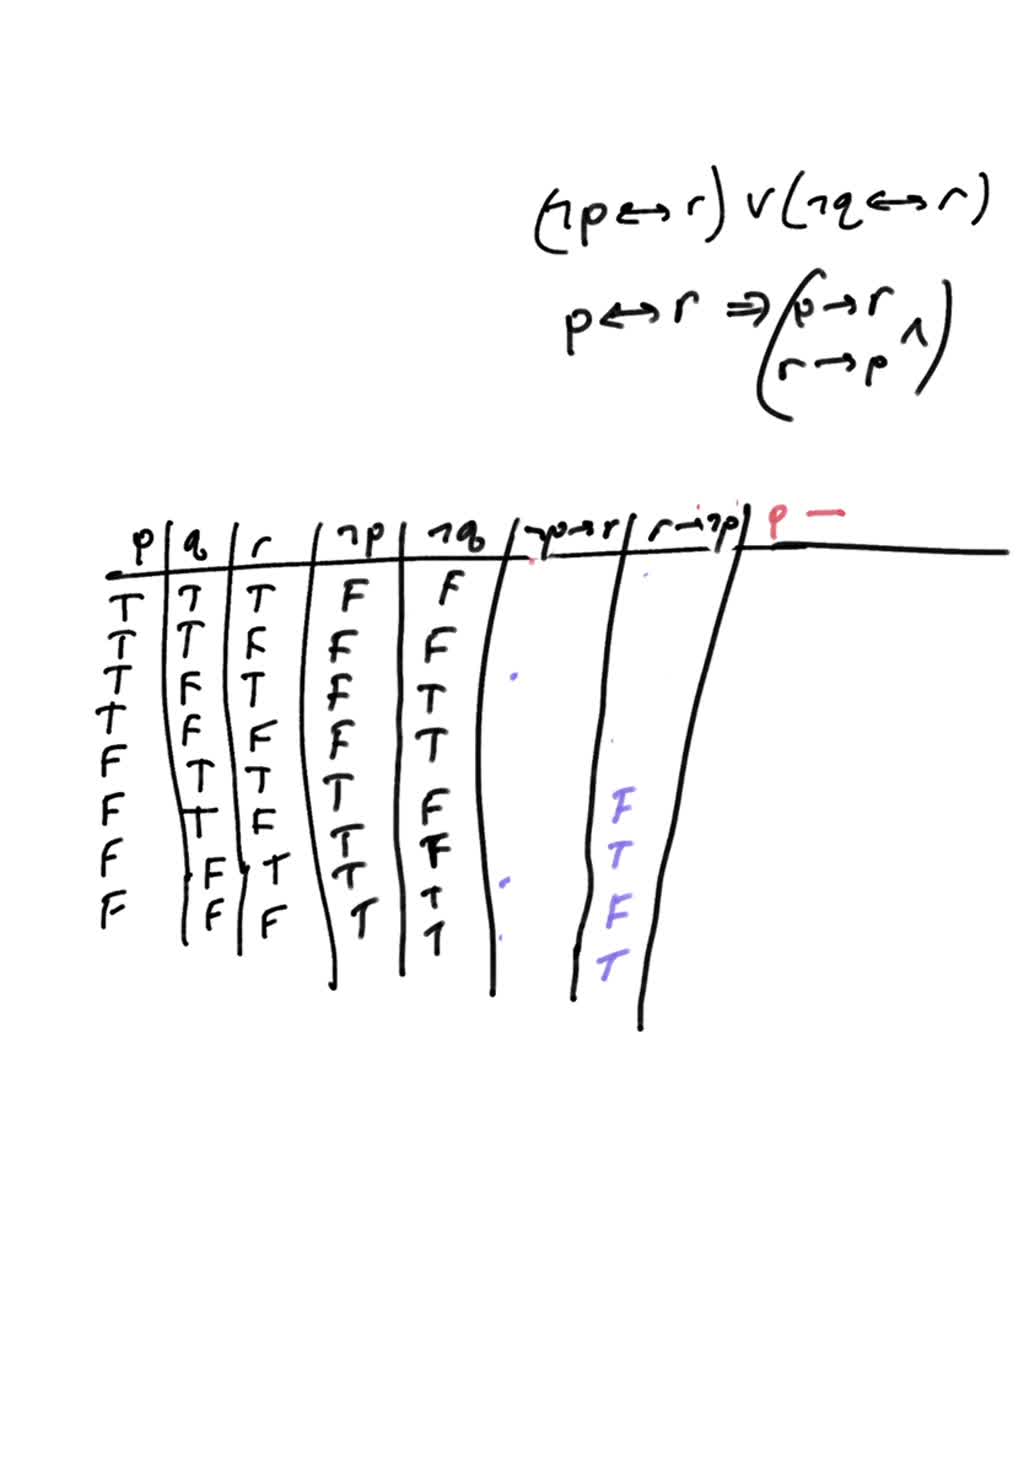 (¬p ↔ r) ∨ (¬q ↔ r)
p ↔ r ⇒ (p → r ∧
r → p)
p q r ¬p ¬q ¬p → r r → ¬p p —
T T T F F
T T F F F
T F T F T
T F F F T
F T T T F F
F T F T F T
F F T T T F
F F F T T T